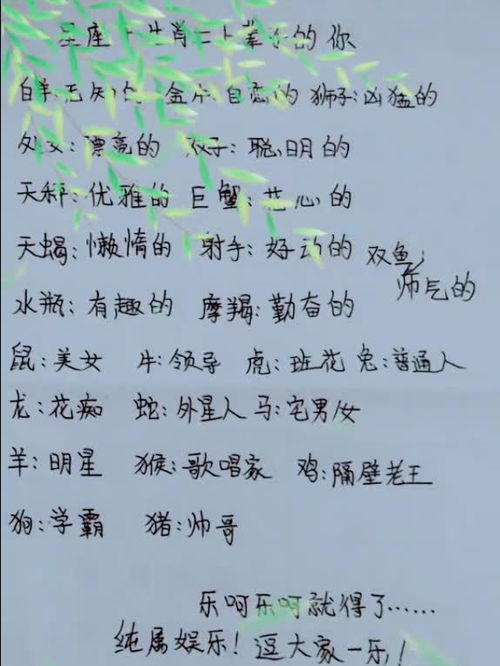 星座＋生肖＝上辈子的你
白羊:无知的 金牛:自恋的 狮子:凶猛的
处女:漂亮的 双子:聪明的
天秤:优雅的 巨蟹:花心的
天蝎:懒惰的 射手:好动的 双鱼:帅气的
水瓶:有趣的 摩羯:勤奋的
鼠:美女 牛:领导 虎:班花 兔:普通人
龙:花痴 蛇:外星人 马:宅男/女
羊:明星 猴:歌唱家 鸡:隔壁老王
狗:学霸 猪:帅哥
乐呵乐呵就得了……
纯属娱乐!逗大家一乐!